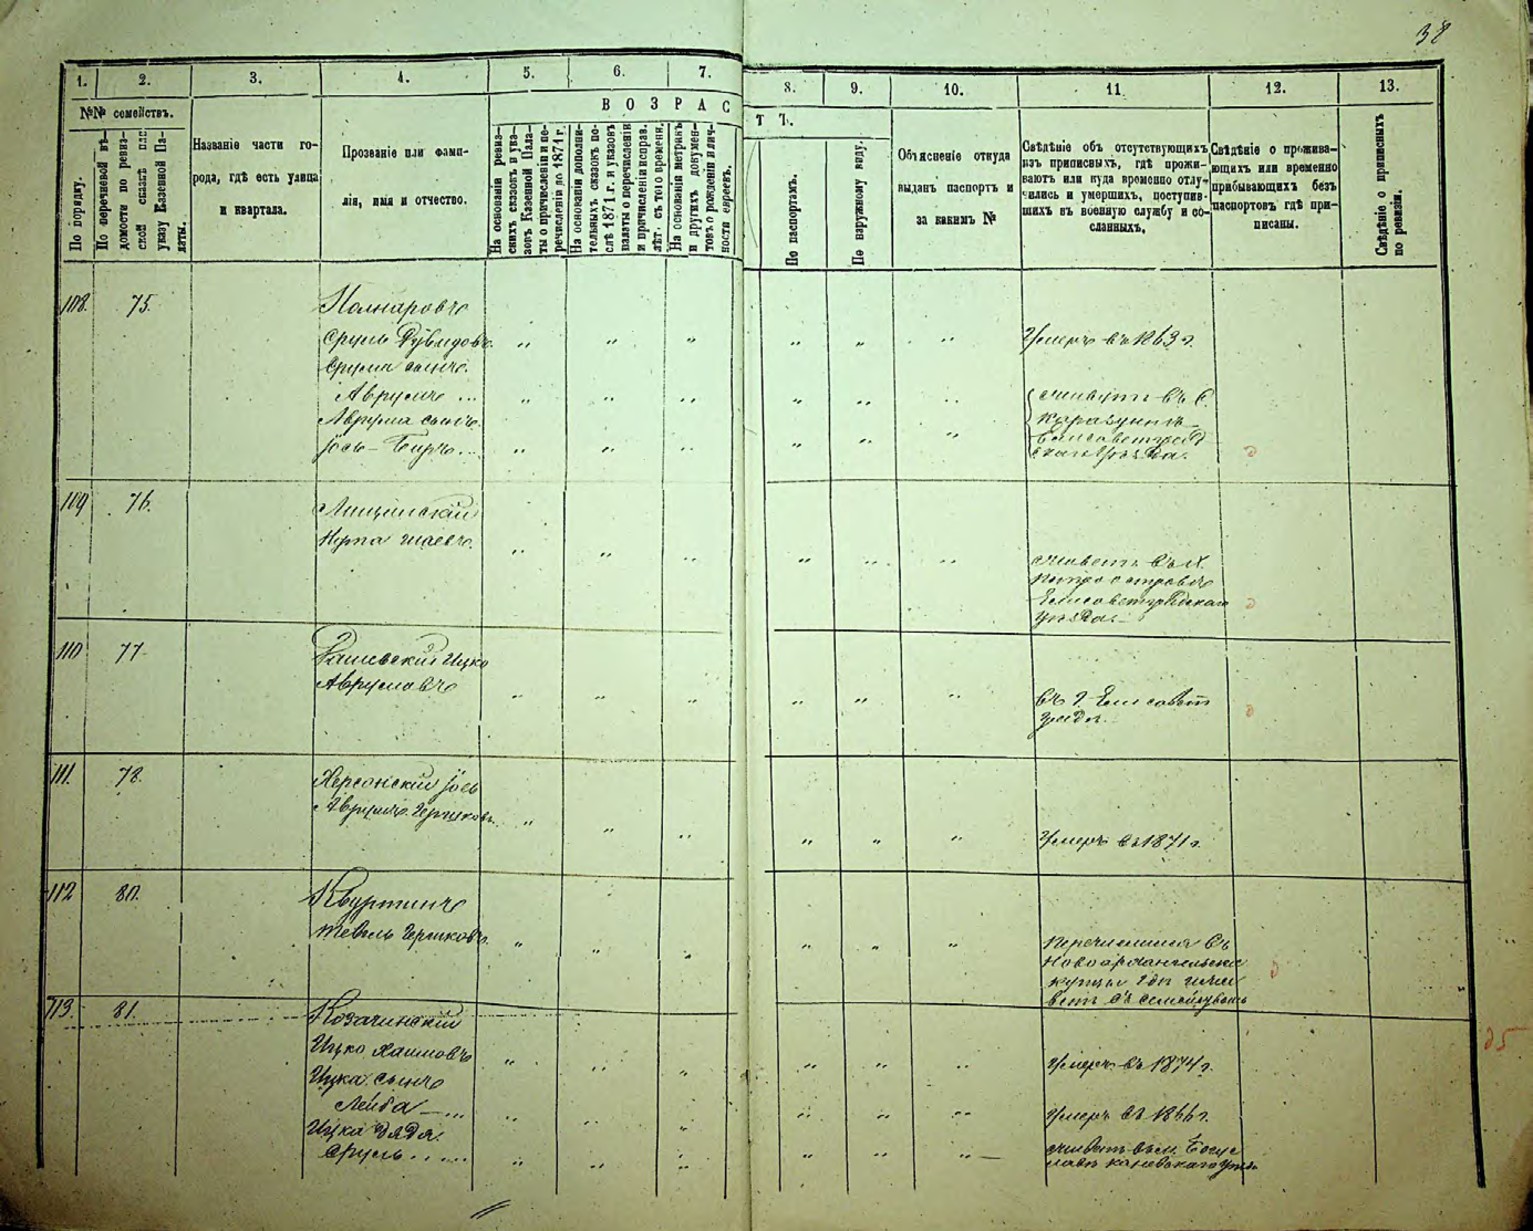 38
1. 2. 3. 4. 5. 6. 7. 8. 9. 10. 11. 12. 13.
№№ семействъ.
По порядку.
По перечневой вѣ-
домости по ревиз-
ской сказкѣ или
указу Казенной Па-
латы.
Названіе части го-
рода, гдѣ есть улица
и квартала.
Прозваніе или фами-
лія, имя и отчество.
ВОЗРАСТЪ.
На основаніи ревиз-
скихъ сказокъ и ука-
зовъ Казенной Пала-
ты о причисленіи и пе-
речисленіи до 1871 г.
На основаніи дополни-
тельныхъ сказокъ по-
слѣ 1871 г. и указовъ
палаты о перечисленіи
и причисленіи исправ.
лѣт. съ того времени.
На основаніи метрикъ
и другихъ докумен-
товъ о рожденіи и лич-
ности евреевъ.
По паспортамъ.
По наружному виду.
Объясненіе откуда
выданъ паспортъ и
за какимъ №
Свѣдѣніе объ отсутствующихъ
изъ приписныхъ, гдѣ прожи-
ваютъ или куда временно отлу-
чились и умершихъ, поступив-
шихъ въ военную службу и со-
сланныхъ.
Свѣдѣніе о прожива-
ющихъ или временно
прибывающихъ безъ
паспортовъ гдѣ при-
писаны.
Свѣдѣніе о приписныхъ
по ревизіи.
108. 75.
Сруль Дувидовъ. Умеръ въ 1863 г.
Сруля сынъ.
Аврумъ ... въ с.
Аврума сынъ.
Іось-Беръ... Елисаветград
109 76.
Шаевъ.
въ
Елисаветградскаго
уѣзда.
110 77
Рашевскій Ицко
Аврумовъ въ г. Елисавет
градѣ.
111. 78.
Херсонскій Іось
Аврумъ Гершковъ. Умеръ въ 1871 г.
112 80.
Гершковъ. въ
Новоархангельскіе
купцы гдѣ и жи
ветъ съ семействомъ
113. 81.
Козачинскій
Ицко Хаимовъ Умеръ въ 1874 г.
Ицка сынъ
Лейба ... Умеръ въ 1866 г.
Ицка дядя.
Сруль ..... живетъ въ м. Богус
лавѣ каневскаго уѣз.
35